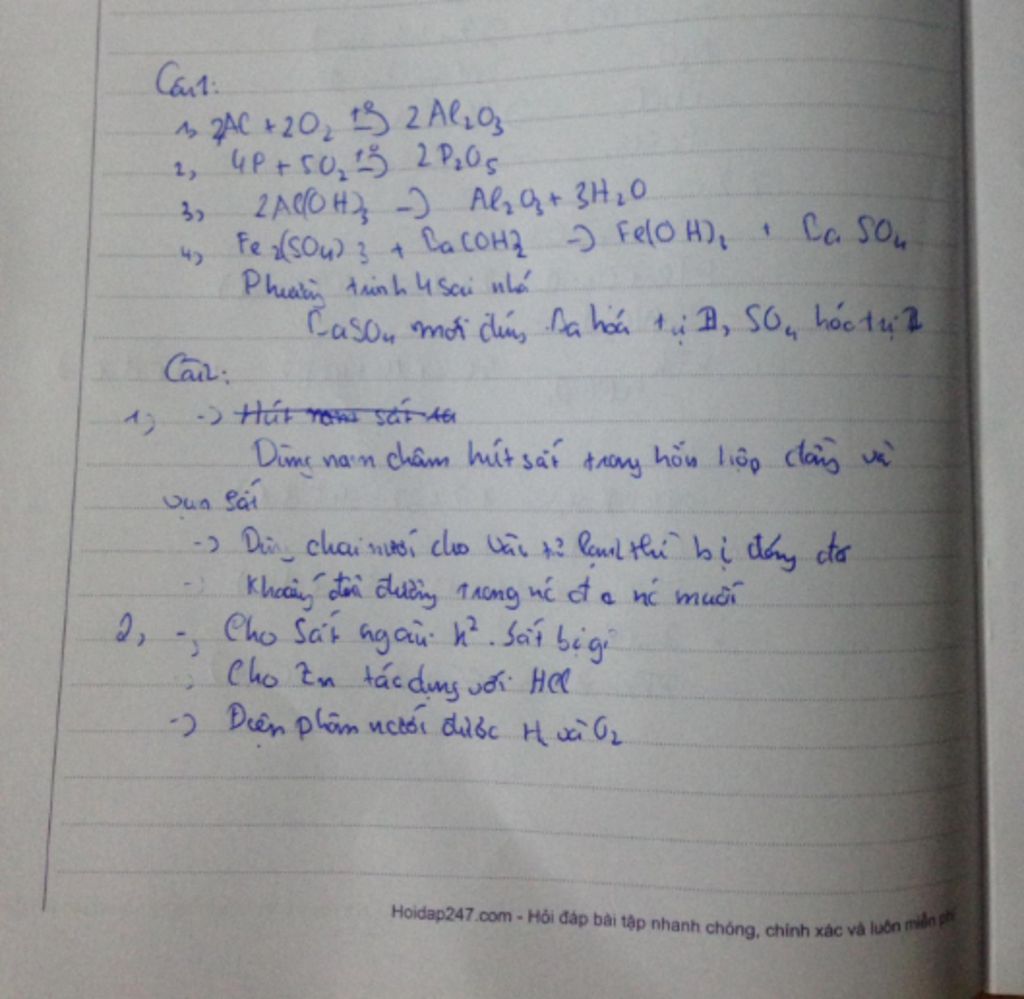 Câu1:
1, 2Al + 2O₂ t°→ 2Al₂O₃
2, 4P + 5O₂ t°→ 2P₂O₅
3, 2Al(OH)₃ → Al₂O₃ + 3H₂O
4, Fe₂(SO₄)₃ + Ca(OH)₂ → Fe(OH)₃ + CaSO₄
Phương trình 4 sai nhá
CaSO₄ mới đúng Ca hoá trị II, SO₄ hóa trị II
Câu2:
1, → Hút nam sắt
Dùng nam châm hút sắt trong hỗn hợp đồng và
vụn sắt
→ Dùng chai nước cho vào tủ lạnh thì bị đóng đá
→ Khoáy đường trong nc đc nc muối
2, → Cho sắt ngoài k². Sắt bị gỉ
→ Cho Zn tác dụng với HCl
→ Điện phân nước được H₂ và O₂
Hoidap247.com - Hỏi đáp bài tập nhanh chóng, chính xác và luôn miễn phí